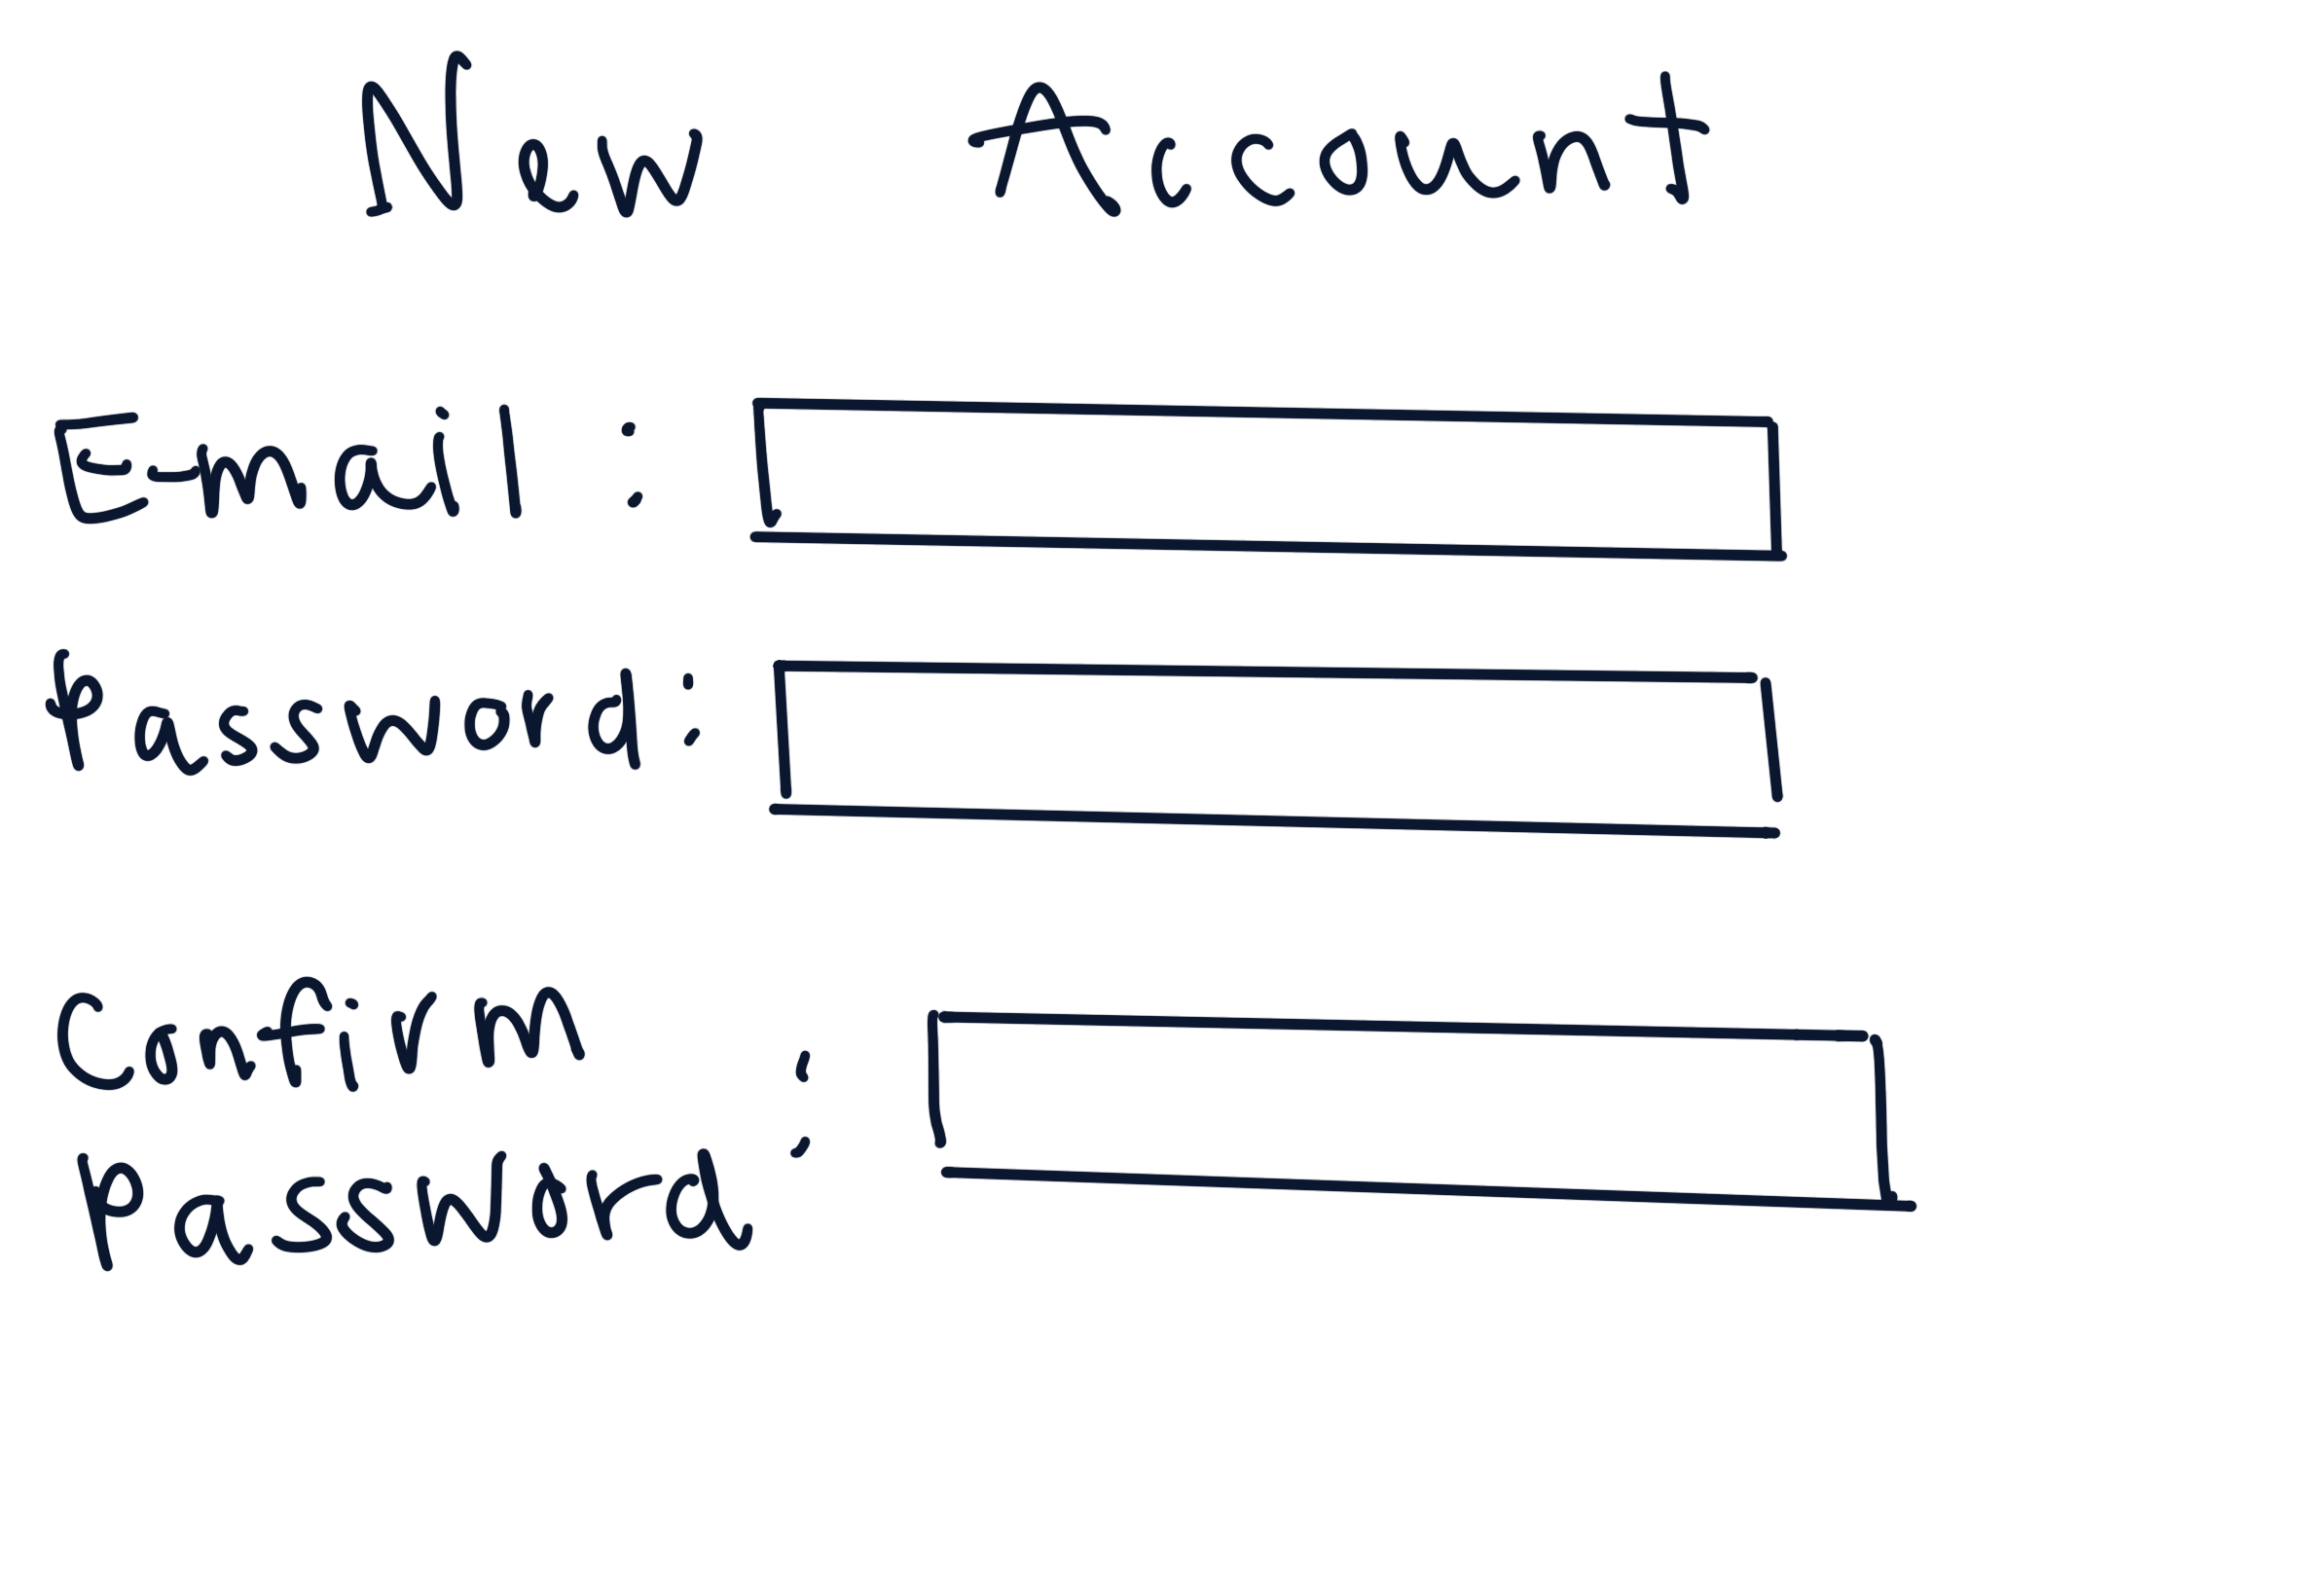 New Account
E-mail :
Password :
Confirm
Password :